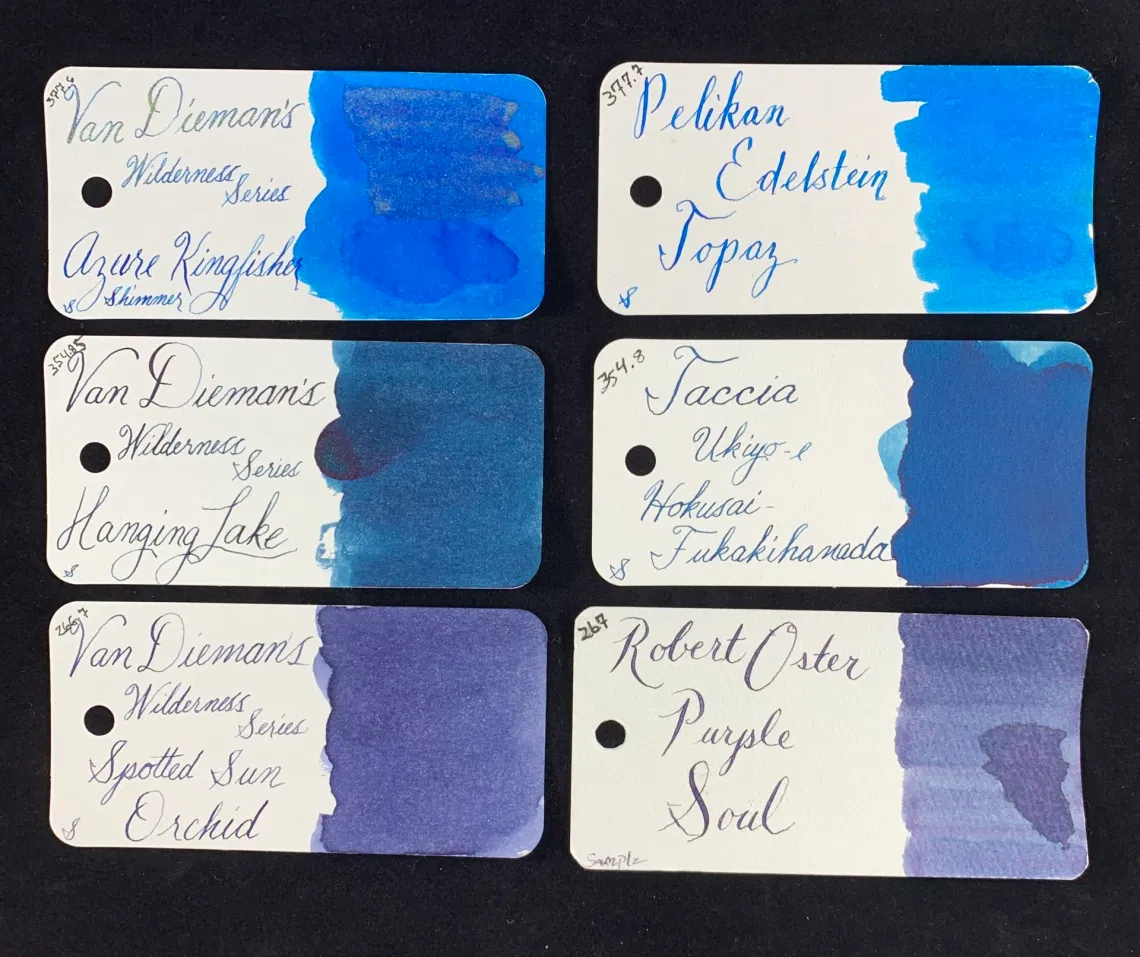 377.6
Van Dieman's
Wilderness
Series
Azure Kingfisher
Shimmer
377.7
Pelikan
Edelstein
Topaz
354.85
Van Dieman's
Wilderness
Series
Hanging Lake
354.8
Taccia
Ukiyo-e
Hokusai-
Fukakihanada
266.7
Van Dieman's
Wilderness
Series
Spotted Sun
Orchid
267
Robert Oster
Purple
Soul
Sample